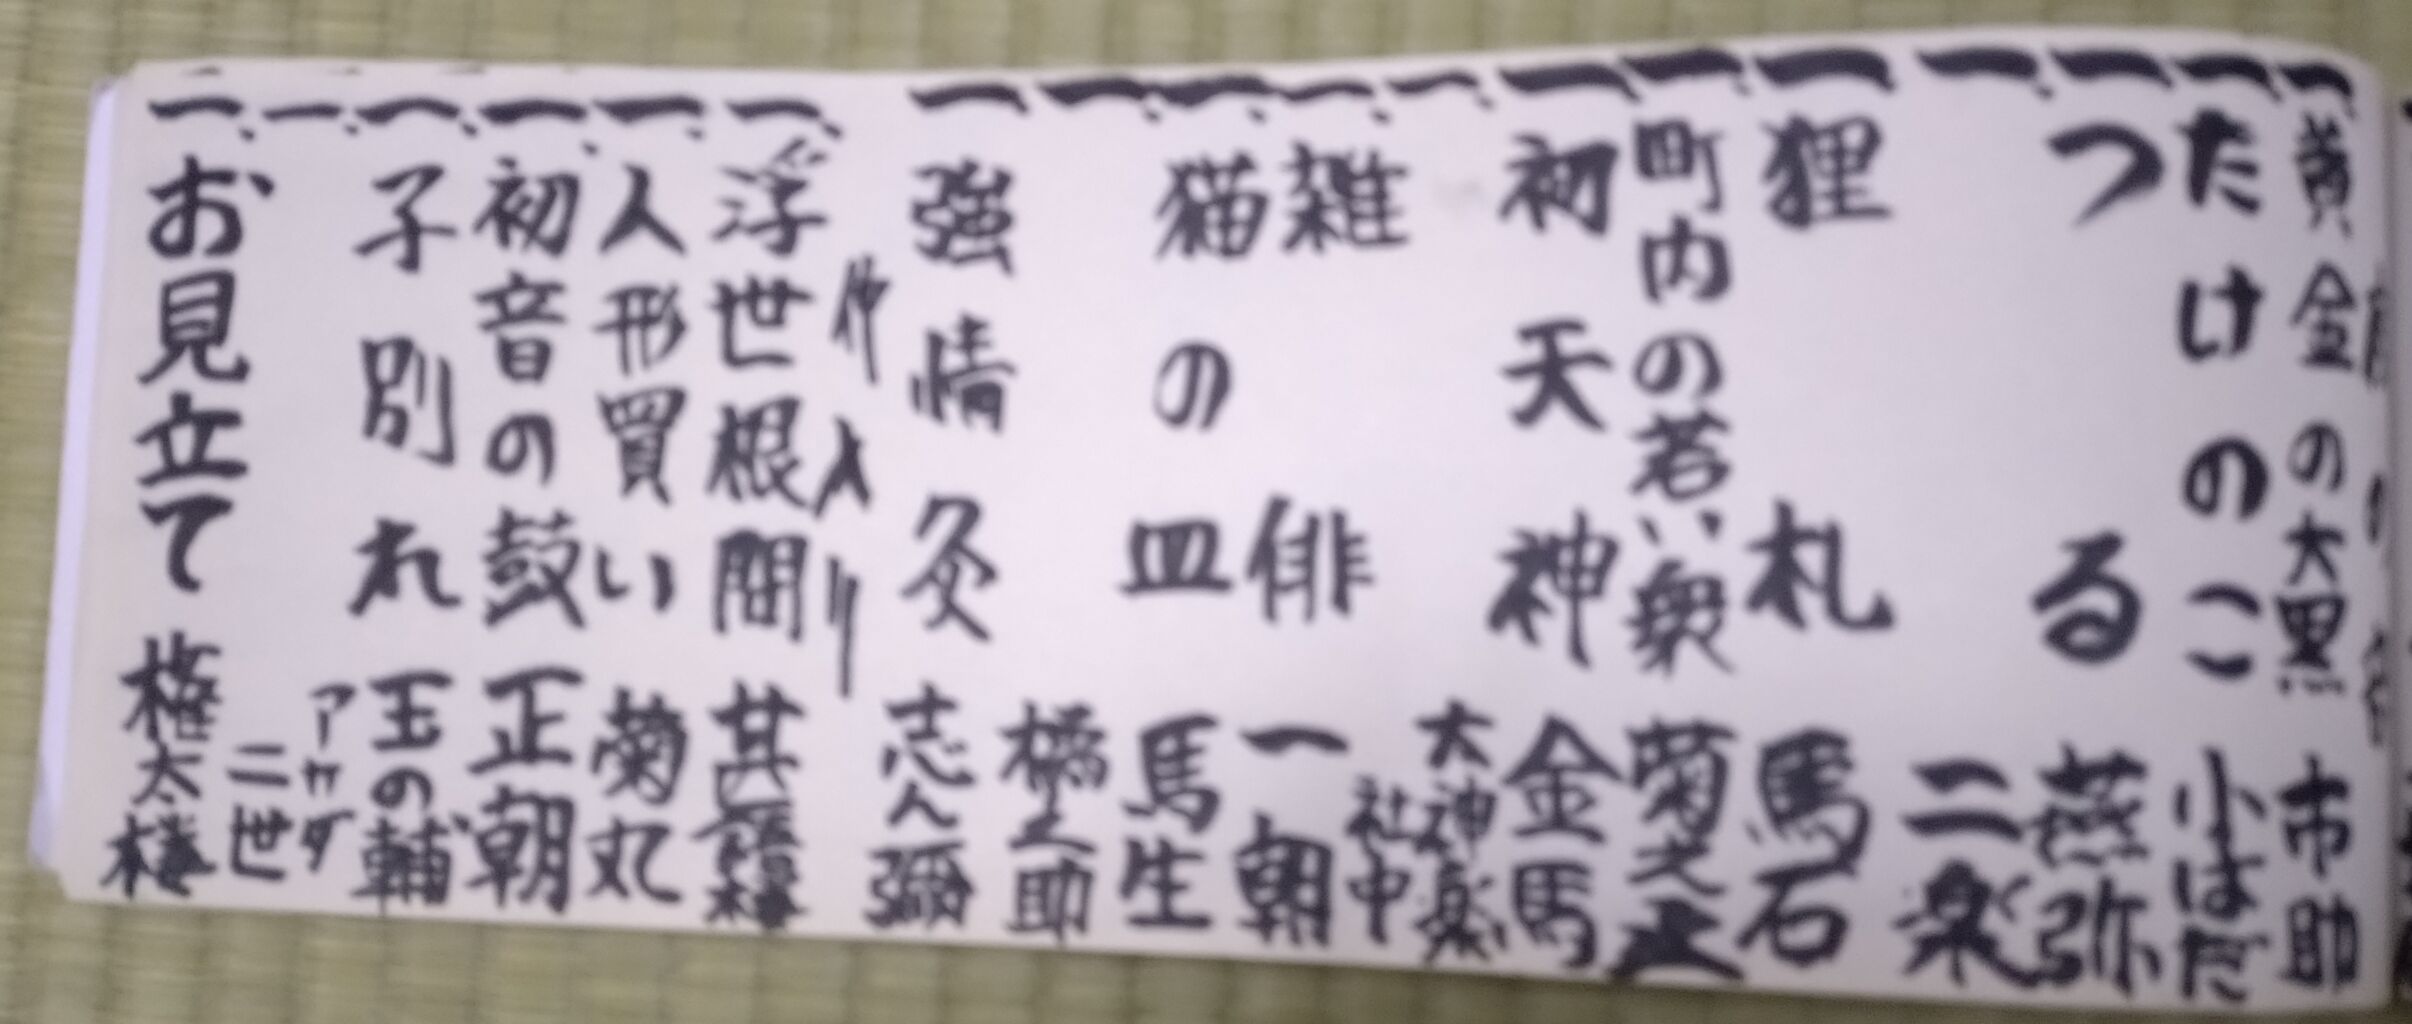 一、黄金の大黒 市助
一、たけのこ 小はだ
一、つる 燕弥
一、二楽
一、狸札 馬石
一、町内の若い衆 菊之丞
一、初天神 金馬
一、大神楽社中
一、雑俳 一朝
一、猫の皿 馬生
一、橘之助
一、強情灸 志ん彌
仲入り
一、浮世根問 甚語樓
一、人形買い 菊丸
一、初音の鼓 正朝
一、子別れ 玉の輔
一、アサダ二世
一、お見立て 権太樓